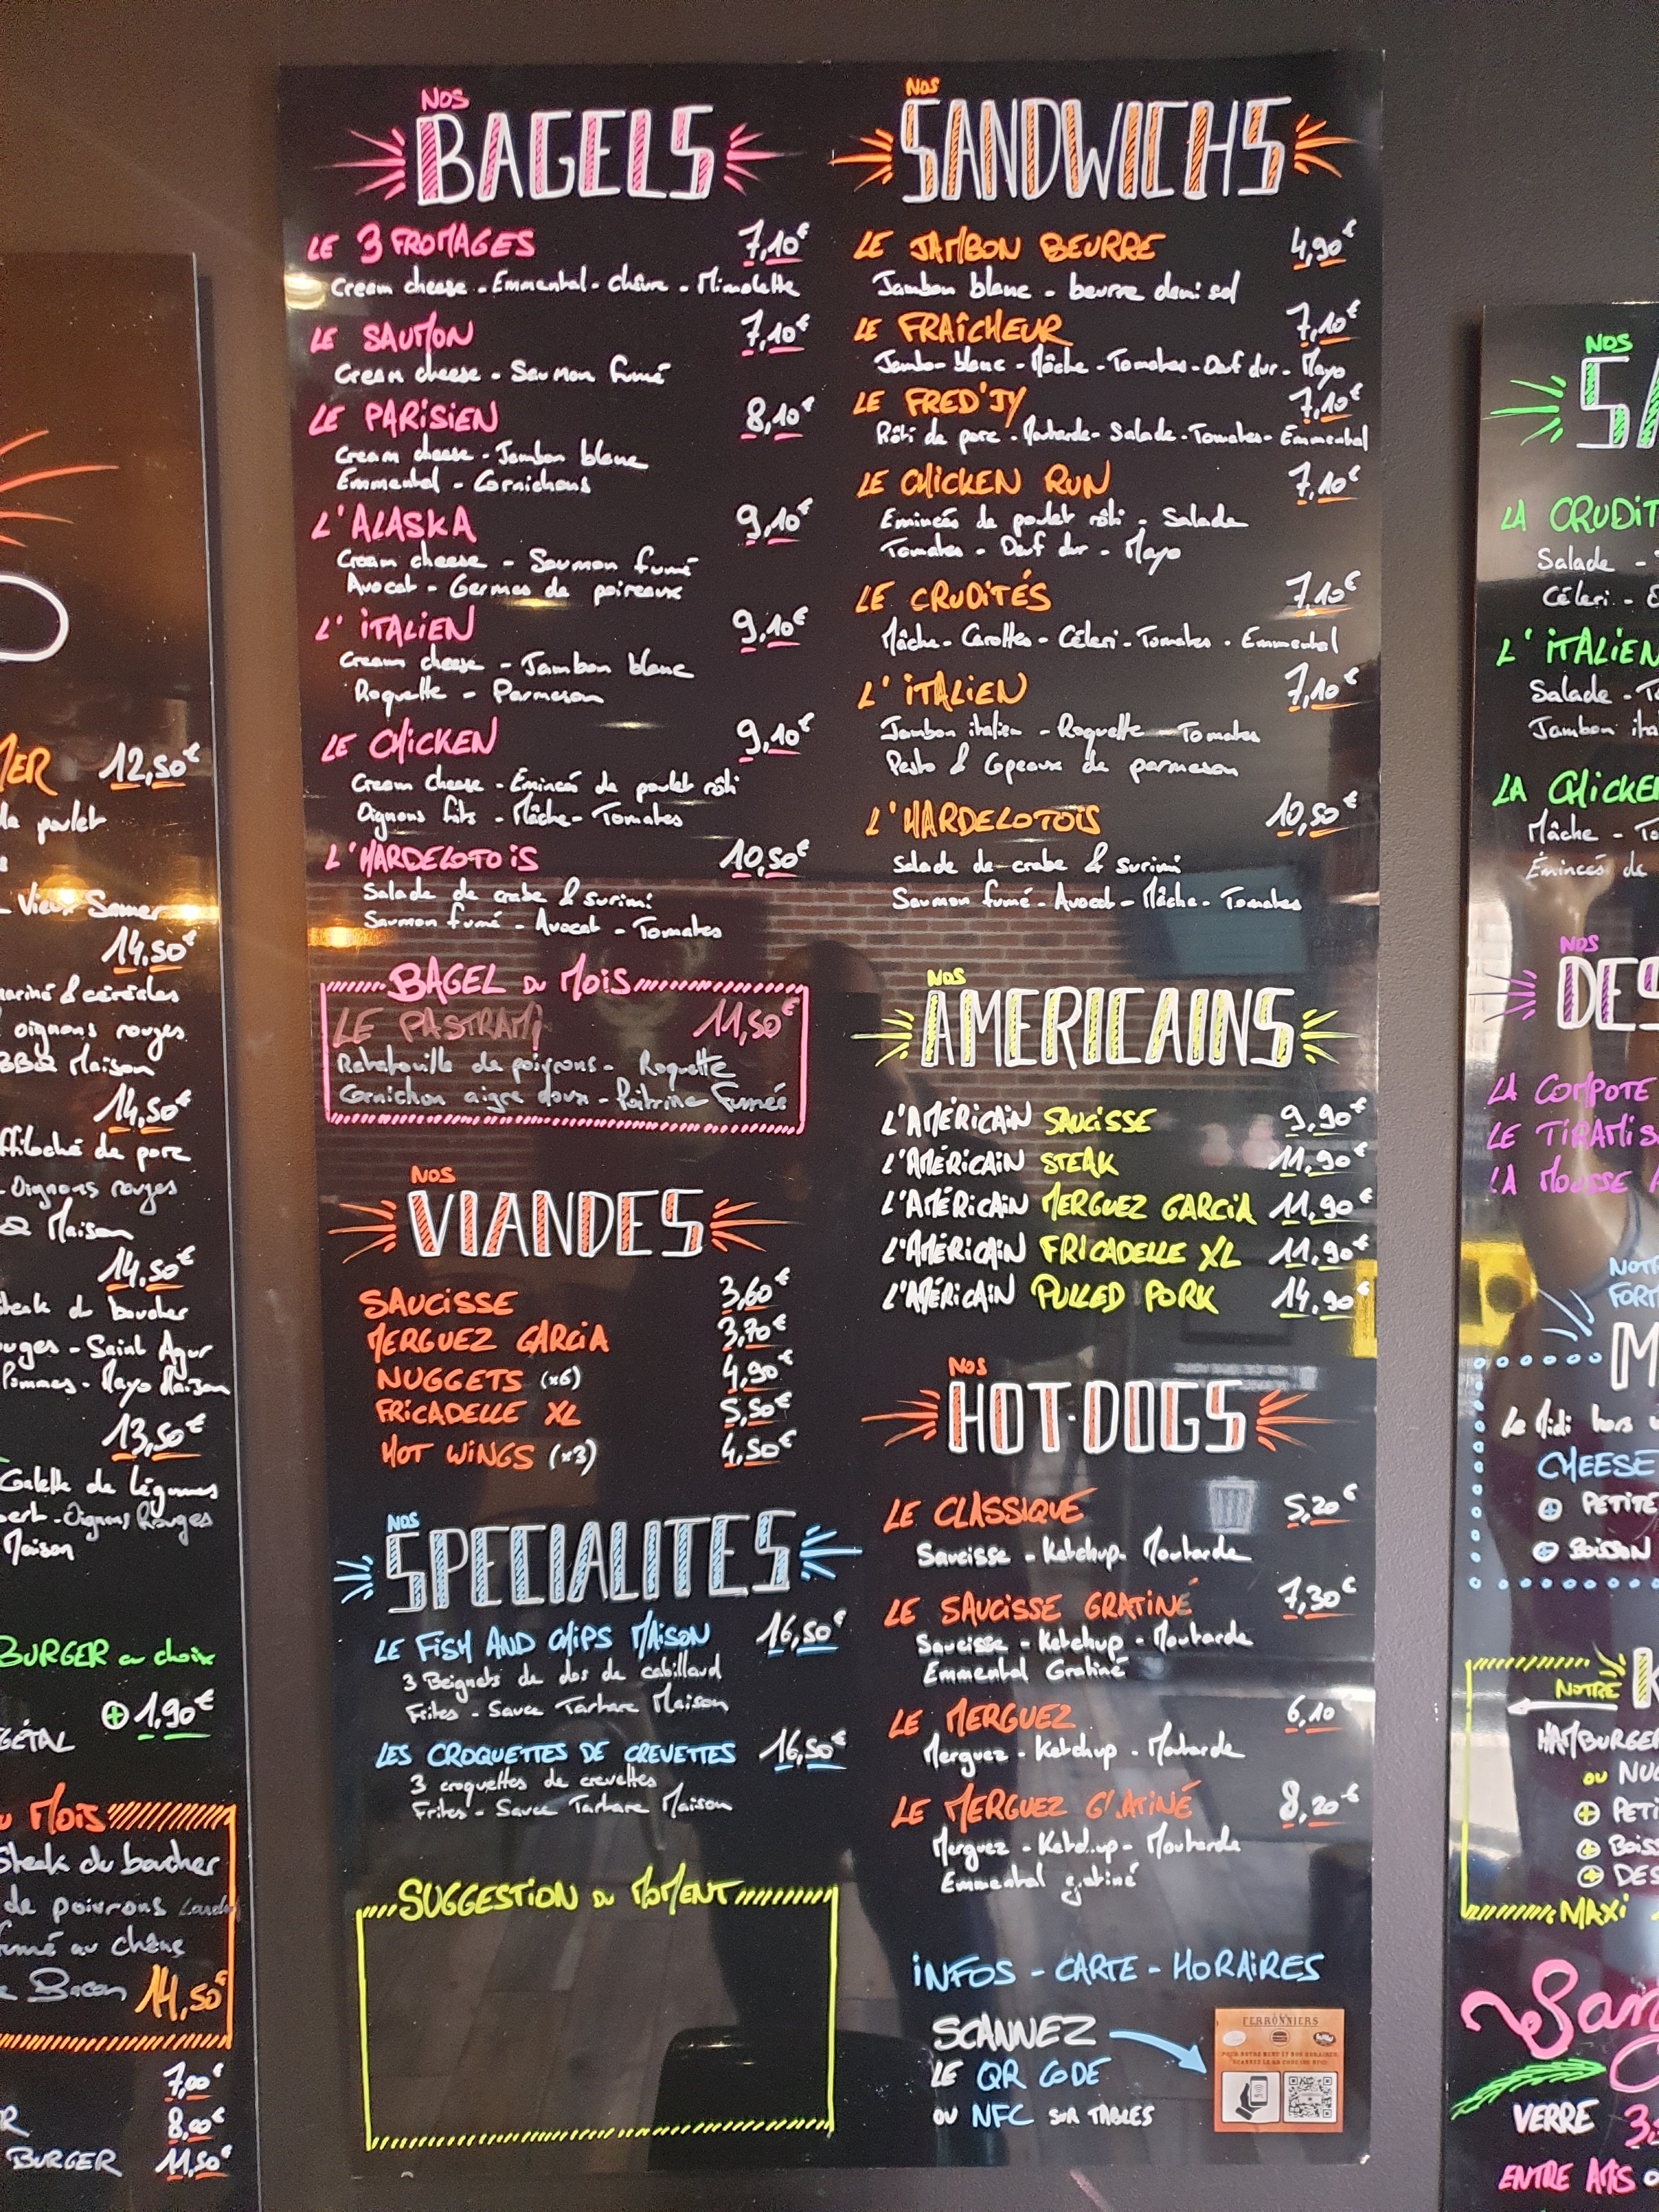 NOS
BAGELS
LE 3 FROMAGES 7,10€
Cream cheese - Emmental - Chèvre - Mimolette
LE SAUMON 7,10€
Cream cheese - Saumon fumé
LE PARISIEN 8,10€
Cream cheese - Jambon blanc
Emmental - Cornichons
L'ALASKA 9,10€
Cream cheese - Saumon fumé
Avocat - Germes de poireaux
L'ITALIEN 9,10€
Cream cheese - Jambon blanc
Roquette - Parmesan
LE CHICKEN 9,10€
Cream cheese - Émincé de poulet rôti
Oignons frits - Mâche - Tomates
L'HARDELOTOIS 10,50€
Salade de crabe & surimi
Saumon fumé - Avocat - Tomates
BAGEL DU MOIS
LE PASTRAMI 11,50€
Ratatouille de poivrons - Roquette
Cornichon aigre doux - Poitrine Fumée
NOS
VIANDES
SAUCISSE 3,60€
MERGUEZ GARCIA 3,70€
NUGGETS (x6) 4,90€
FRICADELLE XL 5,50€
HOT WINGS (x3) 4,50€
NOS
SPECIALITES
LE FISH AND CHIPS MAISON 16,50€
3 Beignets de dos de cabillaud
Frites - Sauce Tartare Maison
LES CROQUETTES DE CREVETTES 16,50€
3 croquettes de crevettes
Frites - Sauce Tartare Maison
SUGGESTION DU MOMENT
NOS
SANDWICHS
LE JAMBON BEURRE 4,90€
Jambon blanc - beurre demi sel
LE FRAÎCHEUR 7,10€
Jambon blanc - Mâche - Tomates - Oeuf dur - Mayo
LE FRED'JY 7,10€
Rôti de porc - Moutarde - Salade - Tomates - Emmental
LE CHICKEN RUN 7,10€
Émincés de poulet rôti - Salade
Tomates - Oeuf dur - Mayo
LE CRUDITÉS 7,10€
Mâche - Carottes - Céleri - Tomates - Emmental
L'ITALIEN 7,10€
Jambon italien - Roquette - Tomates
Pesto & Copeaux de parmesan
L'HARDELOTOIS 10,50€
Salade de crabe & surimi
Saumon fumé - Avocat - Mâche - Tomates
NOS
AMERICAINS
L'AMÉRICAIN SAUCISSE 9,90€
L'AMÉRICAIN STEAK 11,90€
L'AMÉRICAIN MERGUEZ GARCIA 11,90€
L'AMÉRICAIN FRICADELLE XL 11,90€
L'AMÉRICAIN PULLED PORK 14,90€
NOS
HOT-DOGS
LE CLASSIQUE 5,20€
Saucisse - Ketchup - Moutarde
LE SAUCISSE GRATINÉ 7,30€
Saucisse - Ketchup - Moutarde
Emmental Gratiné
LE MERGUEZ 6,10€
Merguez - Ketchup - Moutarde
LE MERGUEZ GRATINÉ 8,20€
Merguez - Ketchup - Moutarde
Emmental gratiné
INFOS - CARTE - HORAIRES
SCANNEZ
LE QR CODE
OU NFC SUR TABLES
FERRONNIERS
12,50€
de poulet
Vieux Samer
14,50€
mariné & céréales
oignons rouges
BBQ Maison
14,50€
ffiloché de porc
Oignons rouges
Maison
14,50€
steak du boucher
ouges - Saint Agur
Pommes - Mayo Maison
13,50€
Galette de légumes
Oignons Rouges
Maison
BURGER au choix
+1,90€
GÉTAL
MOIS
Steak du boucher
de poivrons
fumé au chêne
Bacon 14,50€
7,00€
8,00€
BURGER 11,50€
NOS
SA
LA CRUDIT
Salade -
Céleri -
L'ITALIEN
Salade - To
Jambon ita
LA CHICKEN
Mâche - To
Émincés de
NOS
DES
LA COMPOTE
LE TIRAMIS
LA MOUSSE
NOTR
FORM
M
Le Midi hors
CHEESE
+ PETITE
+ BOISSON
NOTRE K
HAMBURGER
OU NUG
+ PETI
+ BOISS
+ DES
MAXI
San
VERRE 3,
ENTRE AMIS